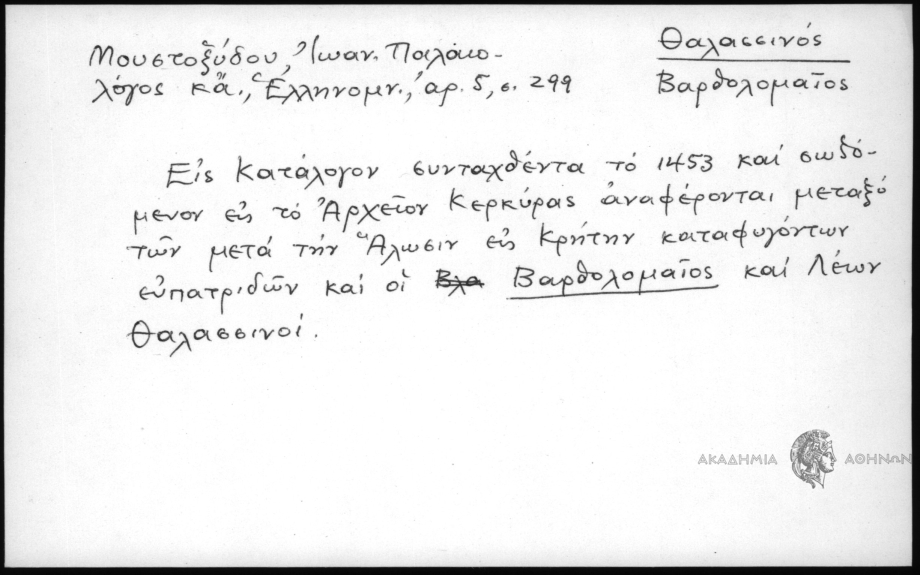 Θαλασσινός
Βαρθολομαῖος
Μουστοξύδου, Ἰωαν. Παλαιο-
λόγος κἄ., Ἑλληνομν., ἀρ. 5, σ. 299
Εἰς Κατάλογον συνταχθέντα τό 1453 καί σωζό-
μενον εἰς τό Ἀρχεῖον Κερκύρας ἀναφέρονται μεταξύ
τῶν μετά τήν Ἅλωσιν εἰς Κρήτην καταφυγόντων
εὐπατριδῶν καί οἱ Βλα Βαρθολομαῖος καί Λέων
Θαλασσινοί.
ΑΚΑΔΗΜΙΑ ΑΘΗΝΩΝ